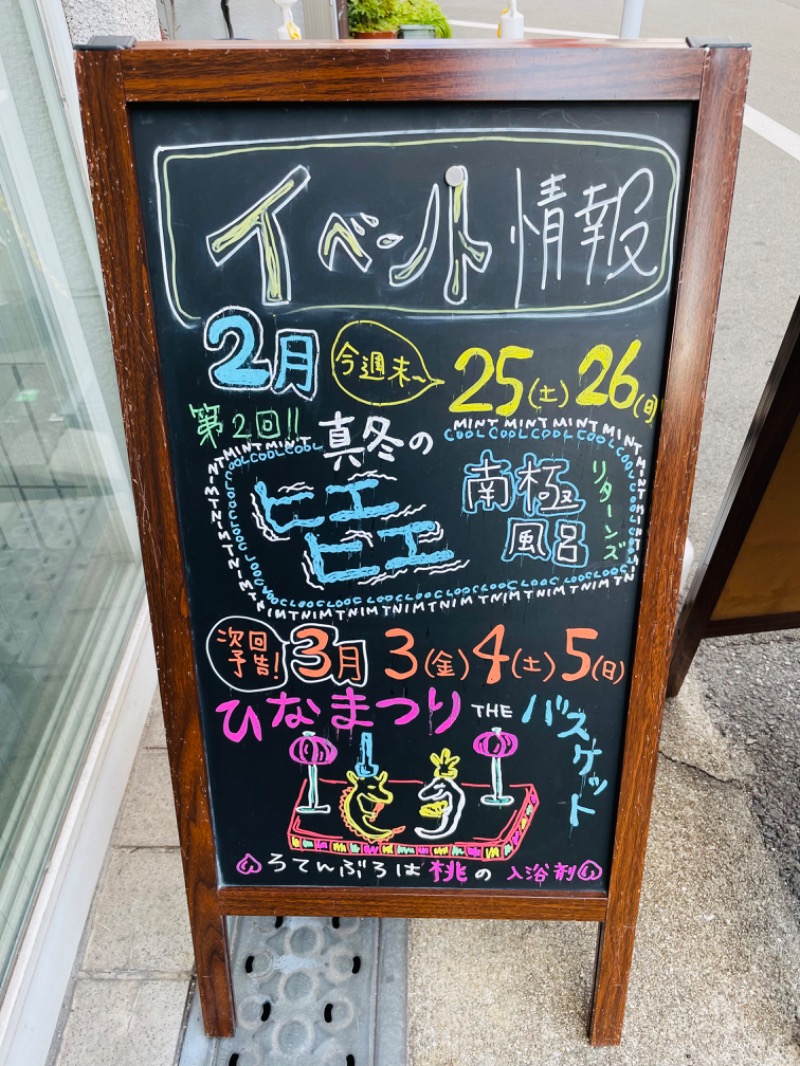 イベント情報
2月 今週末～ 25(土) 26(日)
第2回!! 真冬の
ヒエヒエ
南極風呂
リターンズ
MINT MINT MINT MINT MINT
COOL COOL COOL COOL COOL
次回予告! 3月 3(金) 4(土) 5(日)
ひなまつり THE バスケット
ろてんぶろは桃の入浴剤